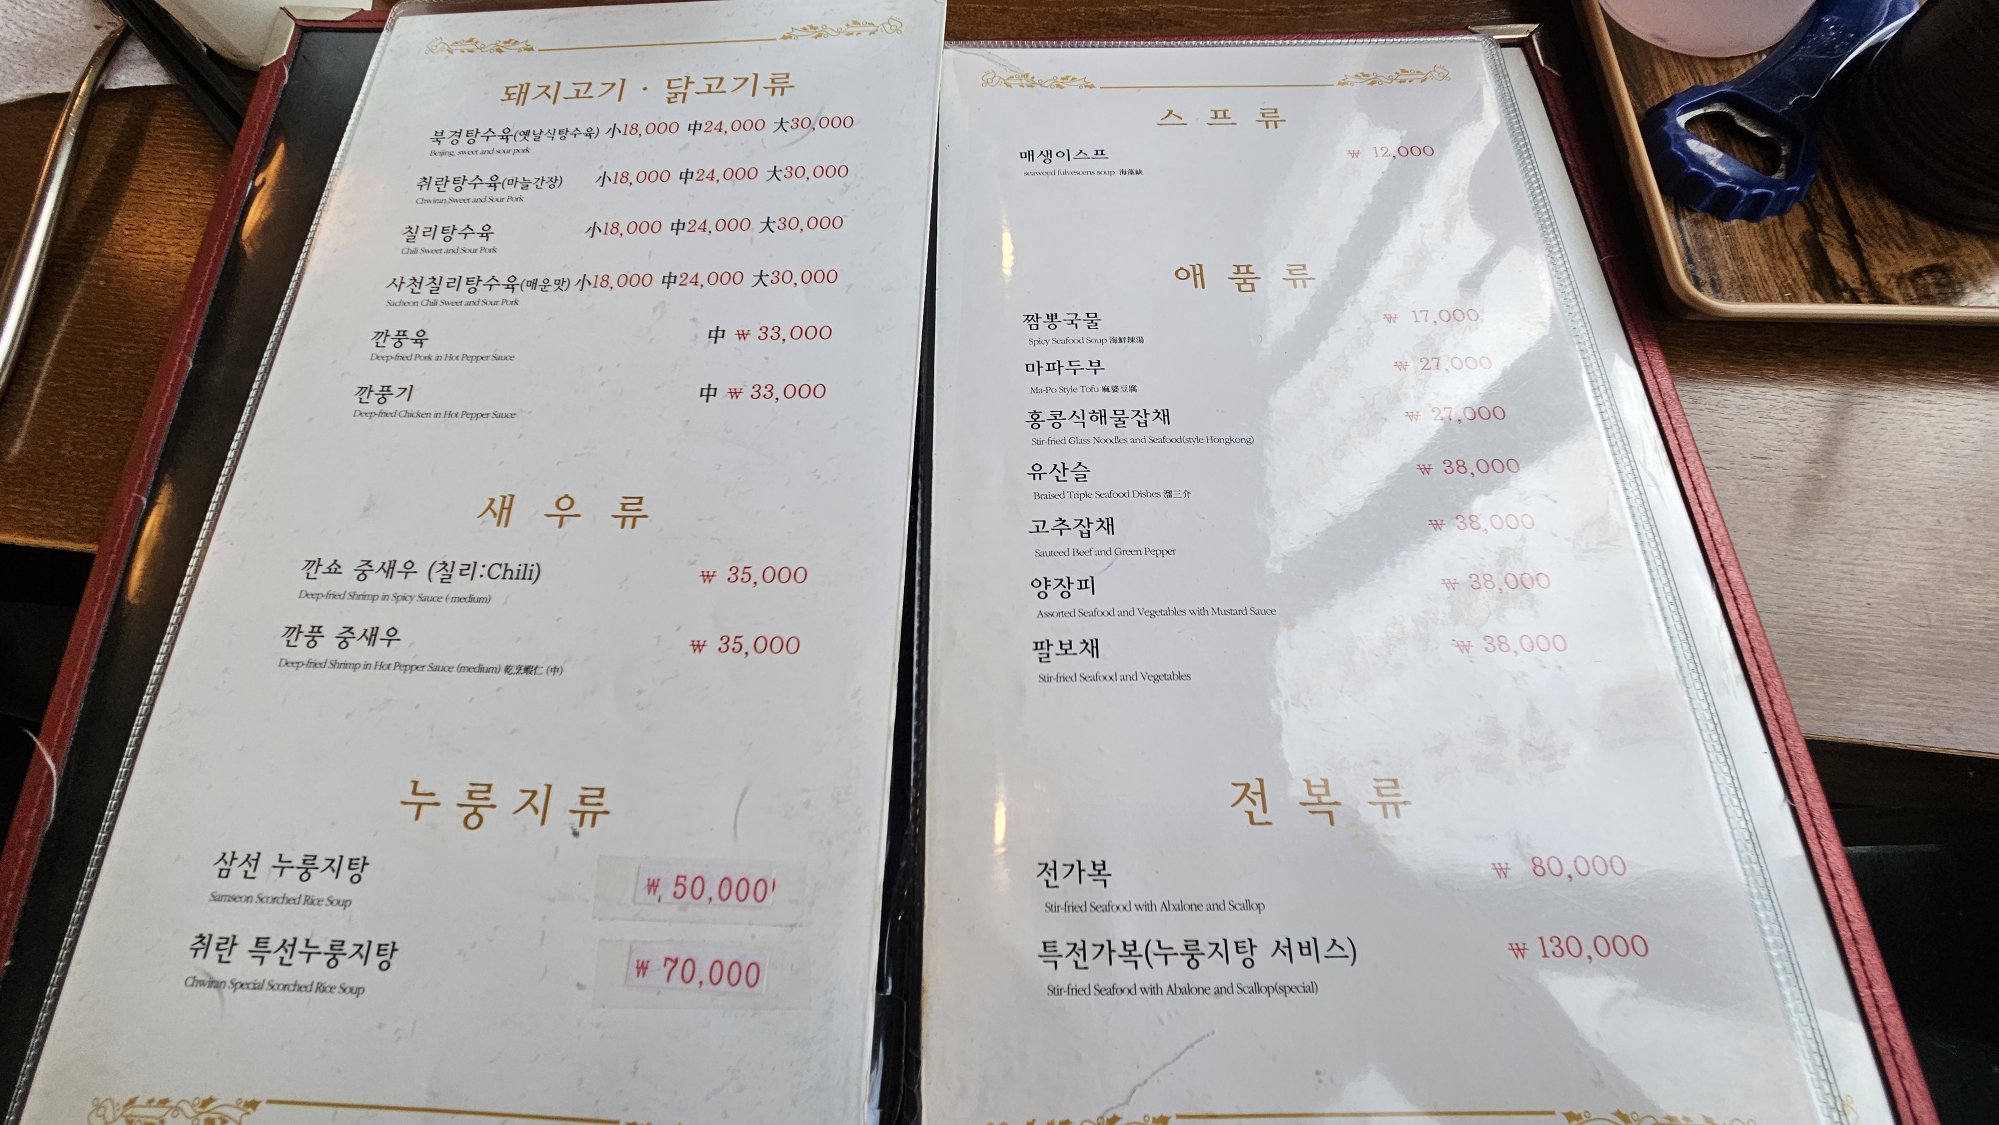 돼지고기 · 닭고기류
북경탕수육(옛날식탕수육) 小18,000 中24,000 大30,000
Beijing, sweet and sour pork
취란탕수육(마늘간장) 小18,000 中24,000 大30,000
Chwiran Sweet and Sour Pork
칠리탕수육 小18,000 中24,000 大30,000
Chili Sweet and Sour Pork
사천칠리탕수육(매운맛) 小18,000 中24,000 大30,000
Sacheon Chili Sweet and Sour Pork
깐풍육 中 ₩ 33,000
Deep-fried Pork in Hot Pepper Sauce
깐풍기 中 ₩ 33,000
Deep-fried Chicken in Hot Pepper Sauce
새 우 류
깐쇼 중새우 (칠리:Chili) ₩ 35,000
Deep-fried Shrimp in Spicy Sauce (medium)
깐풍 중새우 ₩ 35,000
Deep-fried Shrimp in Hot Pepper Sauce (medium) 乾烹蝦仁 (中)
누룽지류
삼선 누룽지탕 ₩ 50,000
Samseon Scorched Rice Soup
취란 특선누룽지탕 ₩ 70,000
Chwiran Special Scorched Rice Soup
스 프 류
매생이스프 ₩ 12,000
seaweed fulvescens soup
애 품 류
짬뽕국물 ₩ 17,000
Spicy Seafood Soup 海鮮辣湯
마파두부 ₩ 27,000
Ma-Po Style Tofu 麻婆豆腐
홍콩식해물잡채 ₩ 27,000
Stir-fried Glass Noodles and Seafood(style Hongkong)
유산슬 ₩ 38,000
Braised Triple Seafood Dishes 溜三介
고추잡채 ₩ 38,000
Sauteed Beef and Green Pepper
양장피 ₩ 38,000
Assorted Seafood and Vegetables with Mustard Sauce
팔보채 ₩ 38,000
Stir-fried Seafood and Vegetables
전 복 류
전가복 ₩ 80,000
Stir-fried Seafood with Abalone and Scallop
특전가복(누룽지탕 서비스) ₩ 130,000
Stir-fried Seafood with Abalone and Scallop(special)